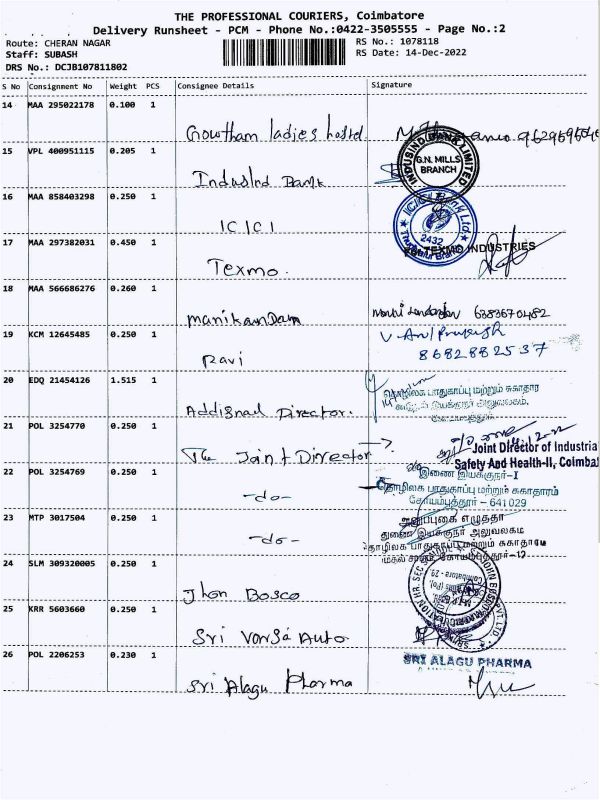 THE PROFESSIONAL COURIERS, Coimbatore
Delivery Runsheet - PCM - Phone No.:0422-3505555 - Page No.:2
Route: CHERAN NAGAR
Staff: SUBASH
DRS No.: DCJB107811802
RS No.: 1078118
RS Date: 14-Dec-2022
S No Consignment No Weight PCS Consignee Details Signature
14 MAA 295022178 0.100 1
Gowtham ladies hostel.
15 VPL 400951115 0.205 1
IndusInd Bank
INDUSIND BANK LIMITED
G.N. MILLS
BRANCH
16 MAA 858403298 0.250 1
ICICI
ICICI Bank Ltd.
2432
17 MAA 297382031 0.450 1
Texmo.
TEXMO INDUSTRIES
18 MAA 566686276 0.260 1
manikandan
6383670482
19 KCM 12645485 0.250 1
Ravi
8682882537
20 EDQ 21454126 1.515 1
Addignail Director.
தொழிலக பாதுகாப்பு மற்றும் சுகாதார
21 POL 3254770 0.250 1
The Joint Director
Joint Director of Industrial
Safety And Health-II, Coimbat
22 POL 3254769 0.250 1
-do-
இணை இயக்குநர்-I
தொழிலக பாதுகாப்பு மற்றும் சுகாதாரம்
கோயம்புத்தூர் - 641029
23 MTP 3017504 0.250 1
-do-
துணை இயக்குநர் அலுவலகம்
24 SLM 309320005 0.250 1
Jhon Bosco
25 KRR 5603660 0.250 1
Sri Varsa Auto
26 POL 2206253 0.230 1
Sri Alagu Pharma
SRI ALAGU PHARMA